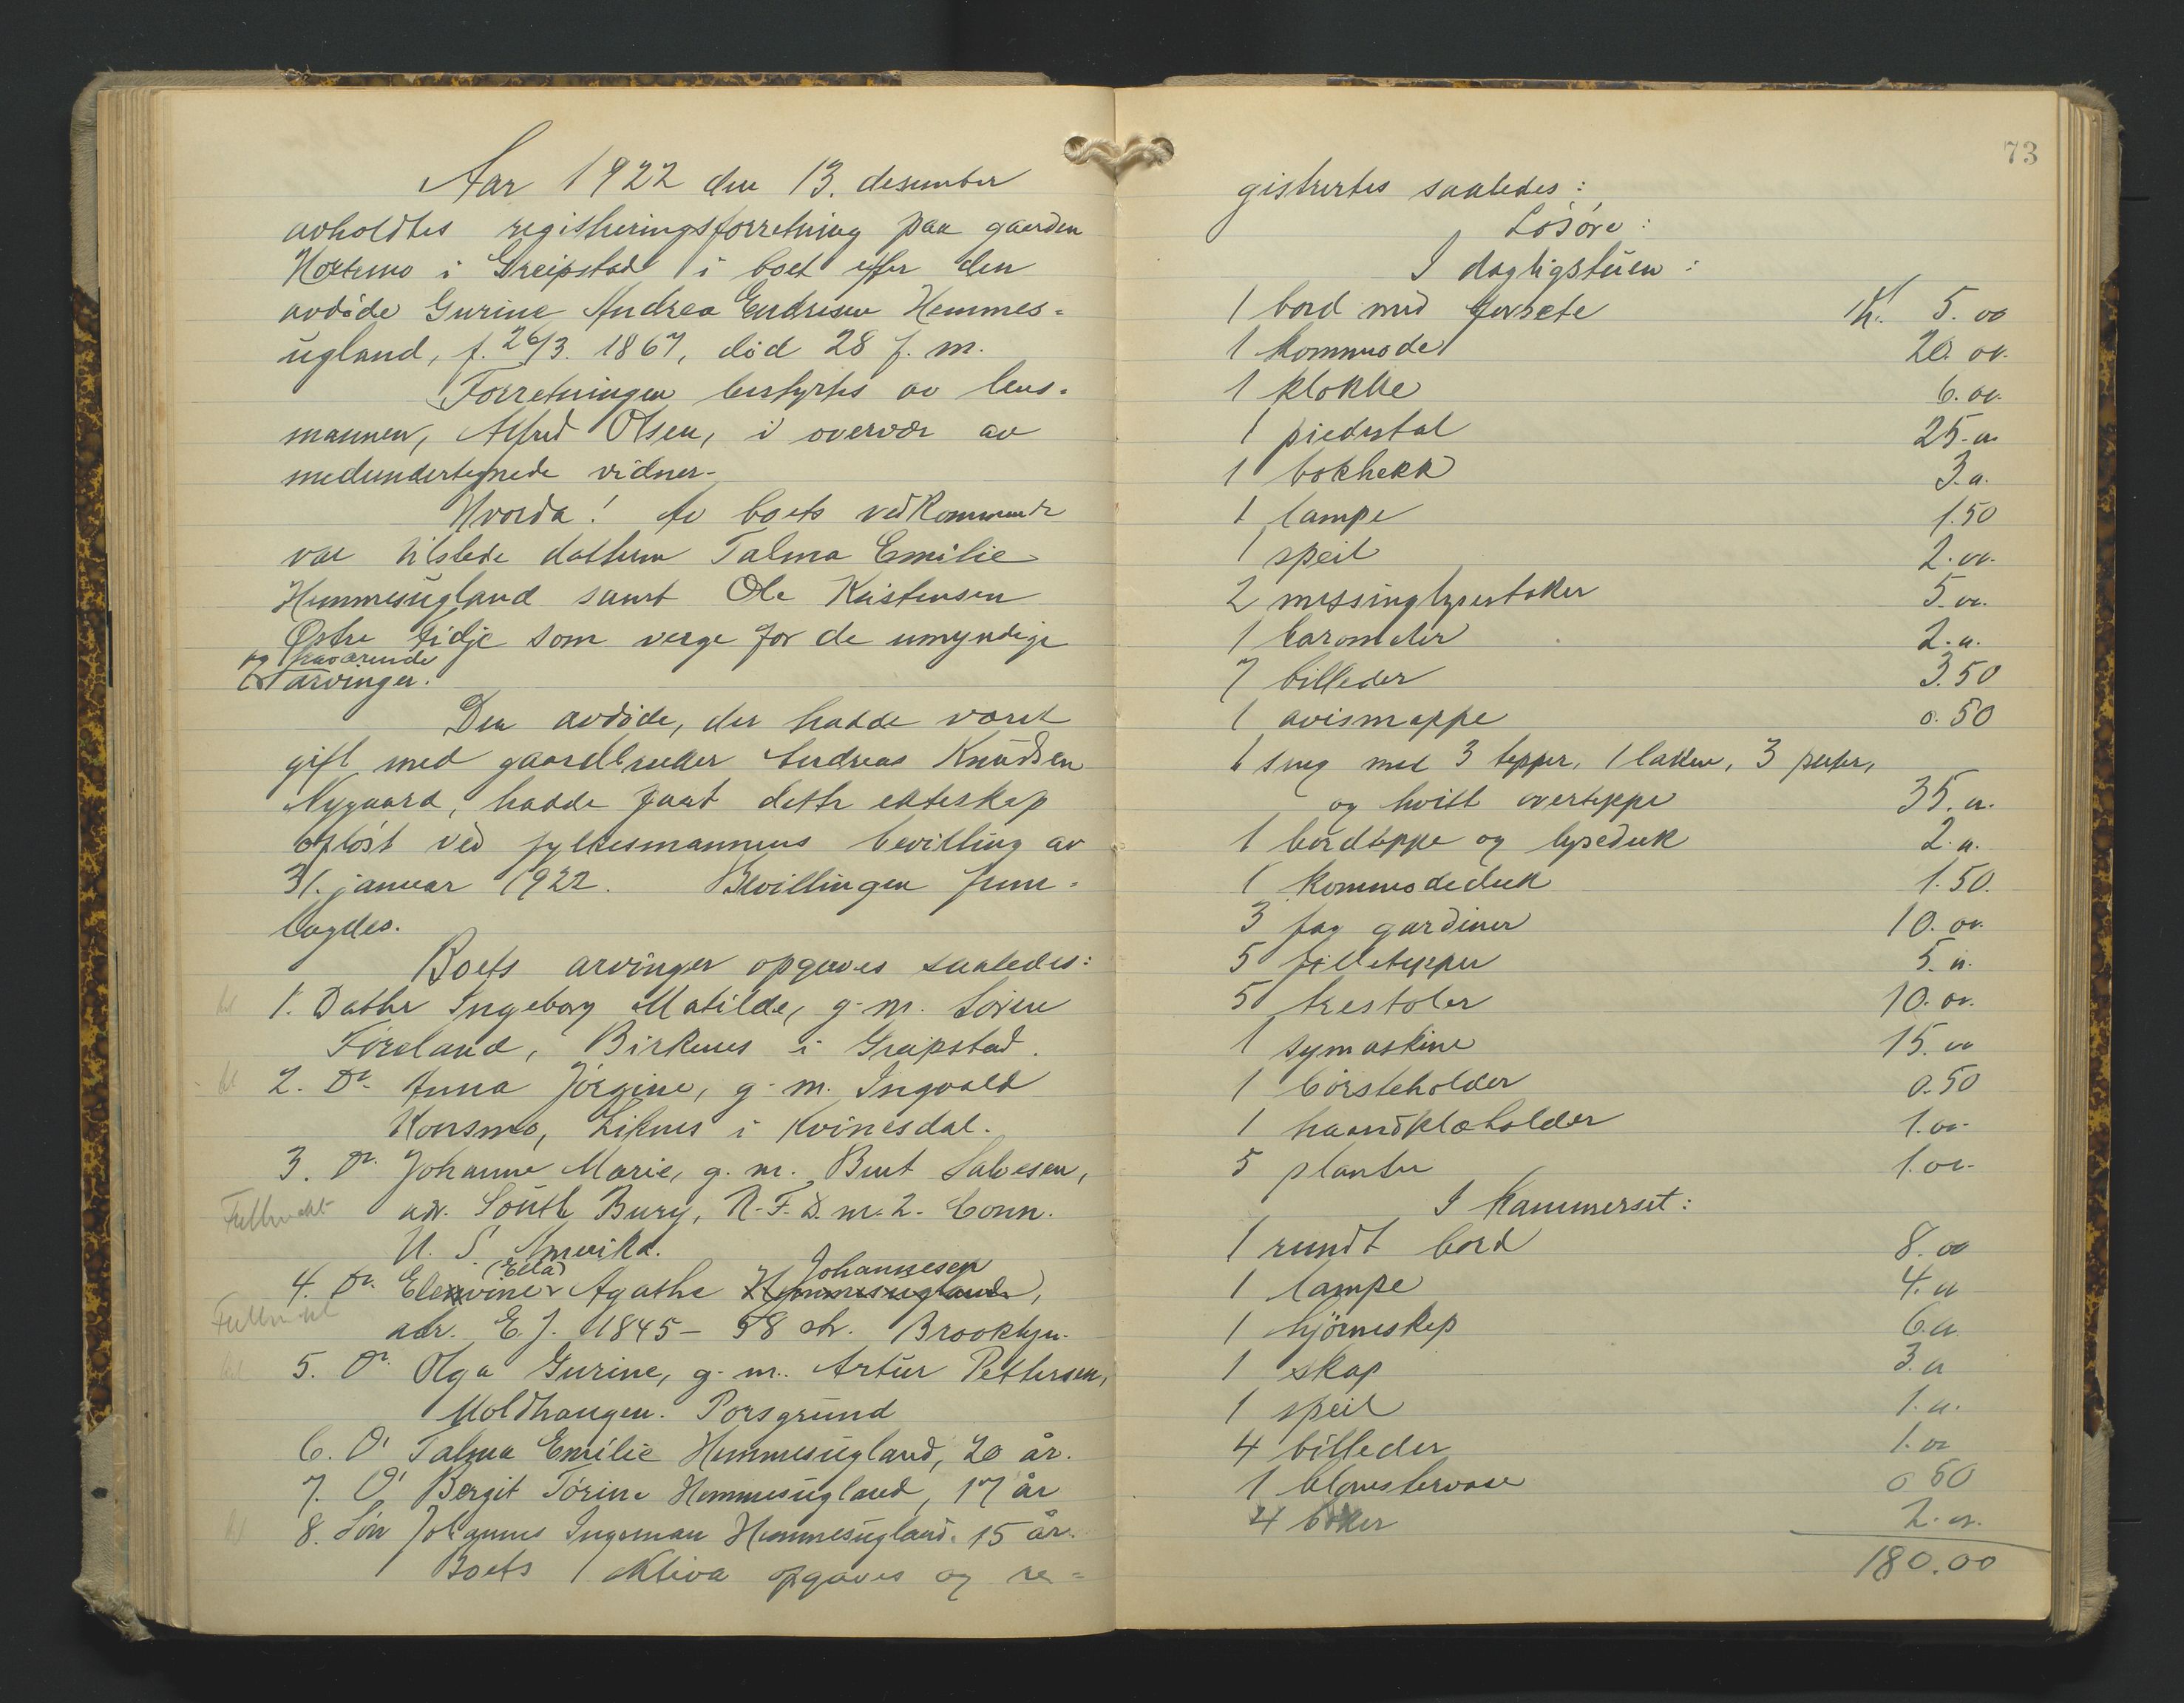 Aar 1922 den 13. desember
avholdtes registreringsforretning paa gaarden
Hortemo i Greipstad i boet efter den
avdöde Gurine Andrea Endresen Hemmes-
ugland, f. 26/3. 1867, död 28 f. m.
Forretningen bestyrtes av lens-
mannen, Alfred Olsen, i overvær av
medundertegnede vidner.
Hvorda! Av boets vedkommende
var tilstede datteren Talma Emilie
Hemmesugland samt Ole Kristensen
Østre Eidje som verge for de umyndige
og fraværende
arvinger.
Den avdöde, der hadde været
gift med gaardbruker Andreas Knudsen
Nygaard, hadde faat dette ekteskap
oplöst ved fylkesmannens bevilling av
31. januar 1922. Bevillingen frem-
lagdes.
Boets arvinger opgaves saaledes:
1. Datter Ingeborg Matilde, g. m. Sören
Föreland, Birkenes i Greipstad.
2. Do. Anna Jörgine, g. m. Ingvald
Konsmo, Liknes i Kvinesdal.
3. Do. Johanne Marie, g. m. Bent Salvesen,
Fullmakt adr. South Bury, R. F. D. m. 2. Conn.
U. S. Amerika.
(Ella) Johannesen
4. Do. Elevine Agathe Hemmesugland,
Fullmakt adr. E. J. 1845 - 58 str. Brooklyn.
5. Do. Olga Gurine, g. m. Artur Pettersen,
Moldhaugen. Porsgrund
6. Do Talma Emilie Hemmesugland, 20 år.
7. Do Bergit Törine Hemmesugland, 17 år
8. Sön Johannes Ingeman Hemmesugland. 15 år.
Boets Aktiva opgaves og re-
73
gistrertes saaledes:
Lösöre:
I dagligstuen:
1 bord med forsete Kr. 5.00
1 kommode 20.00
1 klokke 6.00
1 piedestal 25.00
1 bokhekk 3.00
1 lampe 1.50
1 speil 2.00
2 messinglysestaker 5.00
1 barometer 2.00
7 billeder 3.50
1 avismappe 0.50
1 seng med 3 tepper, 1 laken, 3 puter,
og hvitt overteppe 35.00
1 bordteppe og lyseduk 2.00
1 kommodeduk 1.50
3 fag gardiner 10.00
5 filletepper 5.00
5 trestoler 10.00
1 symaskine 15.00
1 börsteholder 0.50
1 haandklæholder 1.00
5 planter 1.00
I Kammerset:
1 rundt bord 8.00
1 lampe 4.00
1 hjörneskap 6.00
1 skap 3.00
1 speil 1.00
4 billeder 1.00
1 blomstervase 0.50
4 böker 2.00
180.00